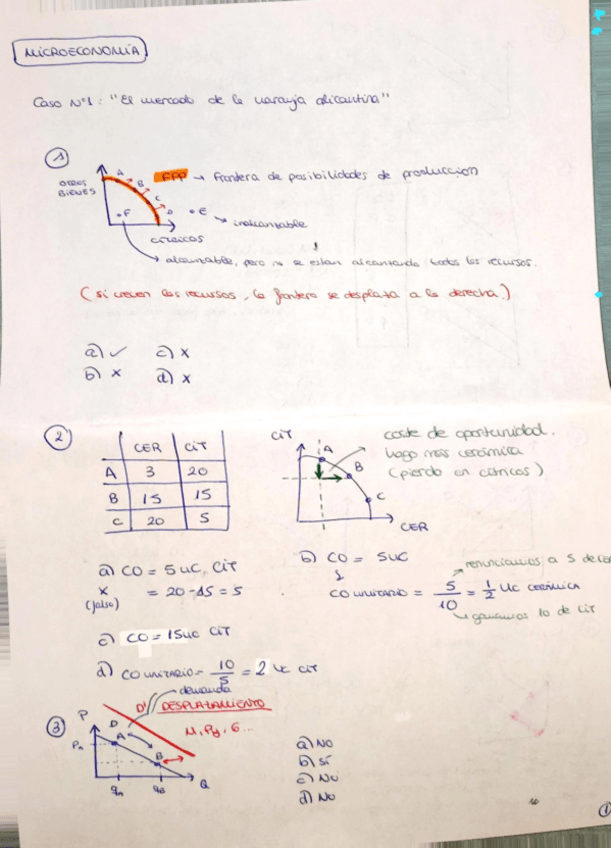 MICROECONOMÍA
Caso Nº1: "El mercado de la naranja alicantina"
1
OTROS BIENES
A
B
C
D
·E → inalcanzable
·F
FPP → frontera de posibilidades de produccion
CÍTRICOS
alcanzable, pero no se estan alcanzando todos los recursos.
(si crecen los recursos, la frontera se desplaza a la derecha.)
a) ✓ c) x
b) x d) x
2
CER CIT
A 3 20
B 15 15
C 20 5
CIT
A
B
C
CER
coste de oportunidad.
hago más cerámica
(pierdo en cítricos)
a) CO = 5 UC, CIT
x = 20-15 = 5
(falso)
b) CO = 5UC
CO UNITARIO = 5/10 = 1/2 UC CERÁMICA
renunciamos a 5 de cer
ganamos 10 de cit
c) CO = 15UC CIT
d) CO UNITARIO = 10/5 = 2 UC CIT
3
P
D
D'
demanda
DESPLAZAMIENTO
A
B
Q
a) NO
b) SÍ
c) NO
d) NO
1